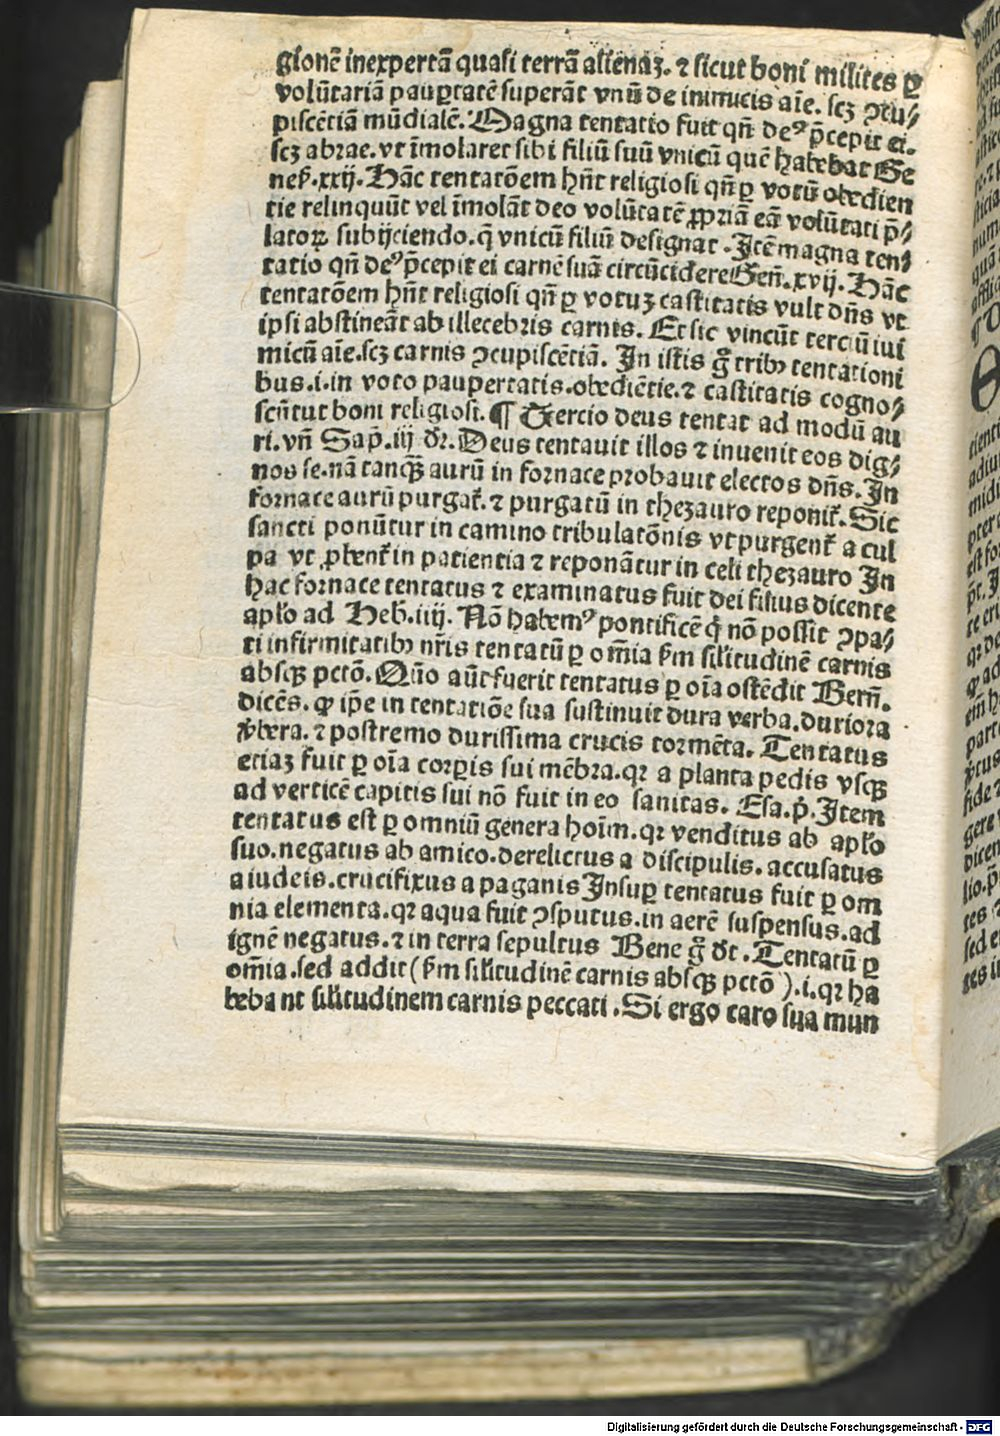 gionē inexpertā quasi terrā alienaʒ. ⁊ sicut boni milites ꝑ
volūtariā pauꝑtatē superāt vnū de inimicis aīe. scʒ ↄcu⸗
piscētiā mūdialē. Magna tentatio fuit qn̄ deꝰ p̄cepit ei.
scʒ abrae. vt īmolaret sibi filiū suū vnicū quē habebat Ge
neẜ. xxij. Hāc tentatōem hn̄t religiosi qn̄ ꝑ votū obedien
tie relinquūt vel īmolāt deo volūtatē ꝓpriā eā volūtati p̄⸗
latoꝝ subijciendo. q̄ vnicū filiū designat. Itē magna ten⸗
tatio qn̄ deꝰ p̄cepit ei carnē suā circūcidere Gen̄. xvij. Hāc
tentatōem hn̄t religiosi qn̄ ꝑ votuʒ castitatis vult dn̄s vt
ipsi abstineāt ab illecebris carnis. Et sic vincūt terciū iui
micū aīe. scʒ carnis ↄcupiscētiā. In istis g̊ tribꝰ tentationi
bus .i. in voto paupertatis. obediētie. ⁊ castitatis cogno⸗
scūtut boni religiosi. ¶ Tercio deus tentat ad modū au
ri. vn̄ Sap̄. iij dr̄. Deus tentauit illos ⁊ inuenit eos dig⸗
nos se. nā tanqꝫ aurū in fornace probauit electos dn̄s. In
fornace aurū purgat̄. ⁊ purgatū in thezauro reponit̄. Sic
sancti ponūtur in camino tribulatōnis vt purgent̄ a cul
pa vt ꝓbent̄ in patientia ⁊ reponātur in celi thezauro In
hac fornace tentatus ⁊ examinatus fuit dei filius dicente
apl̄o ad Heb̄. iiij. Nō habemꝰ pontificē q̇ nō possit ↄpa⸗
ti infirmitatibꝰ nr̄is tentatū ꝑ om̄ia ẜm sil̄itudinē carnis
absqꝫ pctō. Qūo aūt fuerit tentatus ꝑ oīa ostēdit Bern̄.
dicēs. ꝙ ip̄e in tentatiōe sua sustinuit dura verba. duriora
v̄bera. ⁊ postremo durissima crucis tormēta. Tentatus
etiaʒ fuit ꝑ oīa corꝑis sui mēbra. qꝛ a planta pedis vsqꝫ
ad verticē capitis sui nō fuit in eo sanitas. Esa. p̄. Item
tentatus est ꝑ omniū genera hoīm. qꝛ venditus ab apl̄o
suo. negatus ab amico. derelictus a discipulis. accusatus
a iudeis. crucifixus a paganis Insuꝑ tentatus fuit ꝑ om
nia elementa. qꝛ aqua fuit ↄsputus. in aerē suspensus. ad
ignē negatus. ⁊ in terra sepultus Bene g̊ dr̄. Tentatū ꝑ
om̄ia. sed addit (ẜm sil̄itudinē carnis absqꝫ pctō ) .i. qꝛ ha
bebant sil̄itudinem carnis peccati. Si ergo caro sua mun
Digitalisierung gefördert durch die Deutsche Forschungsgemeinschaft - DFG